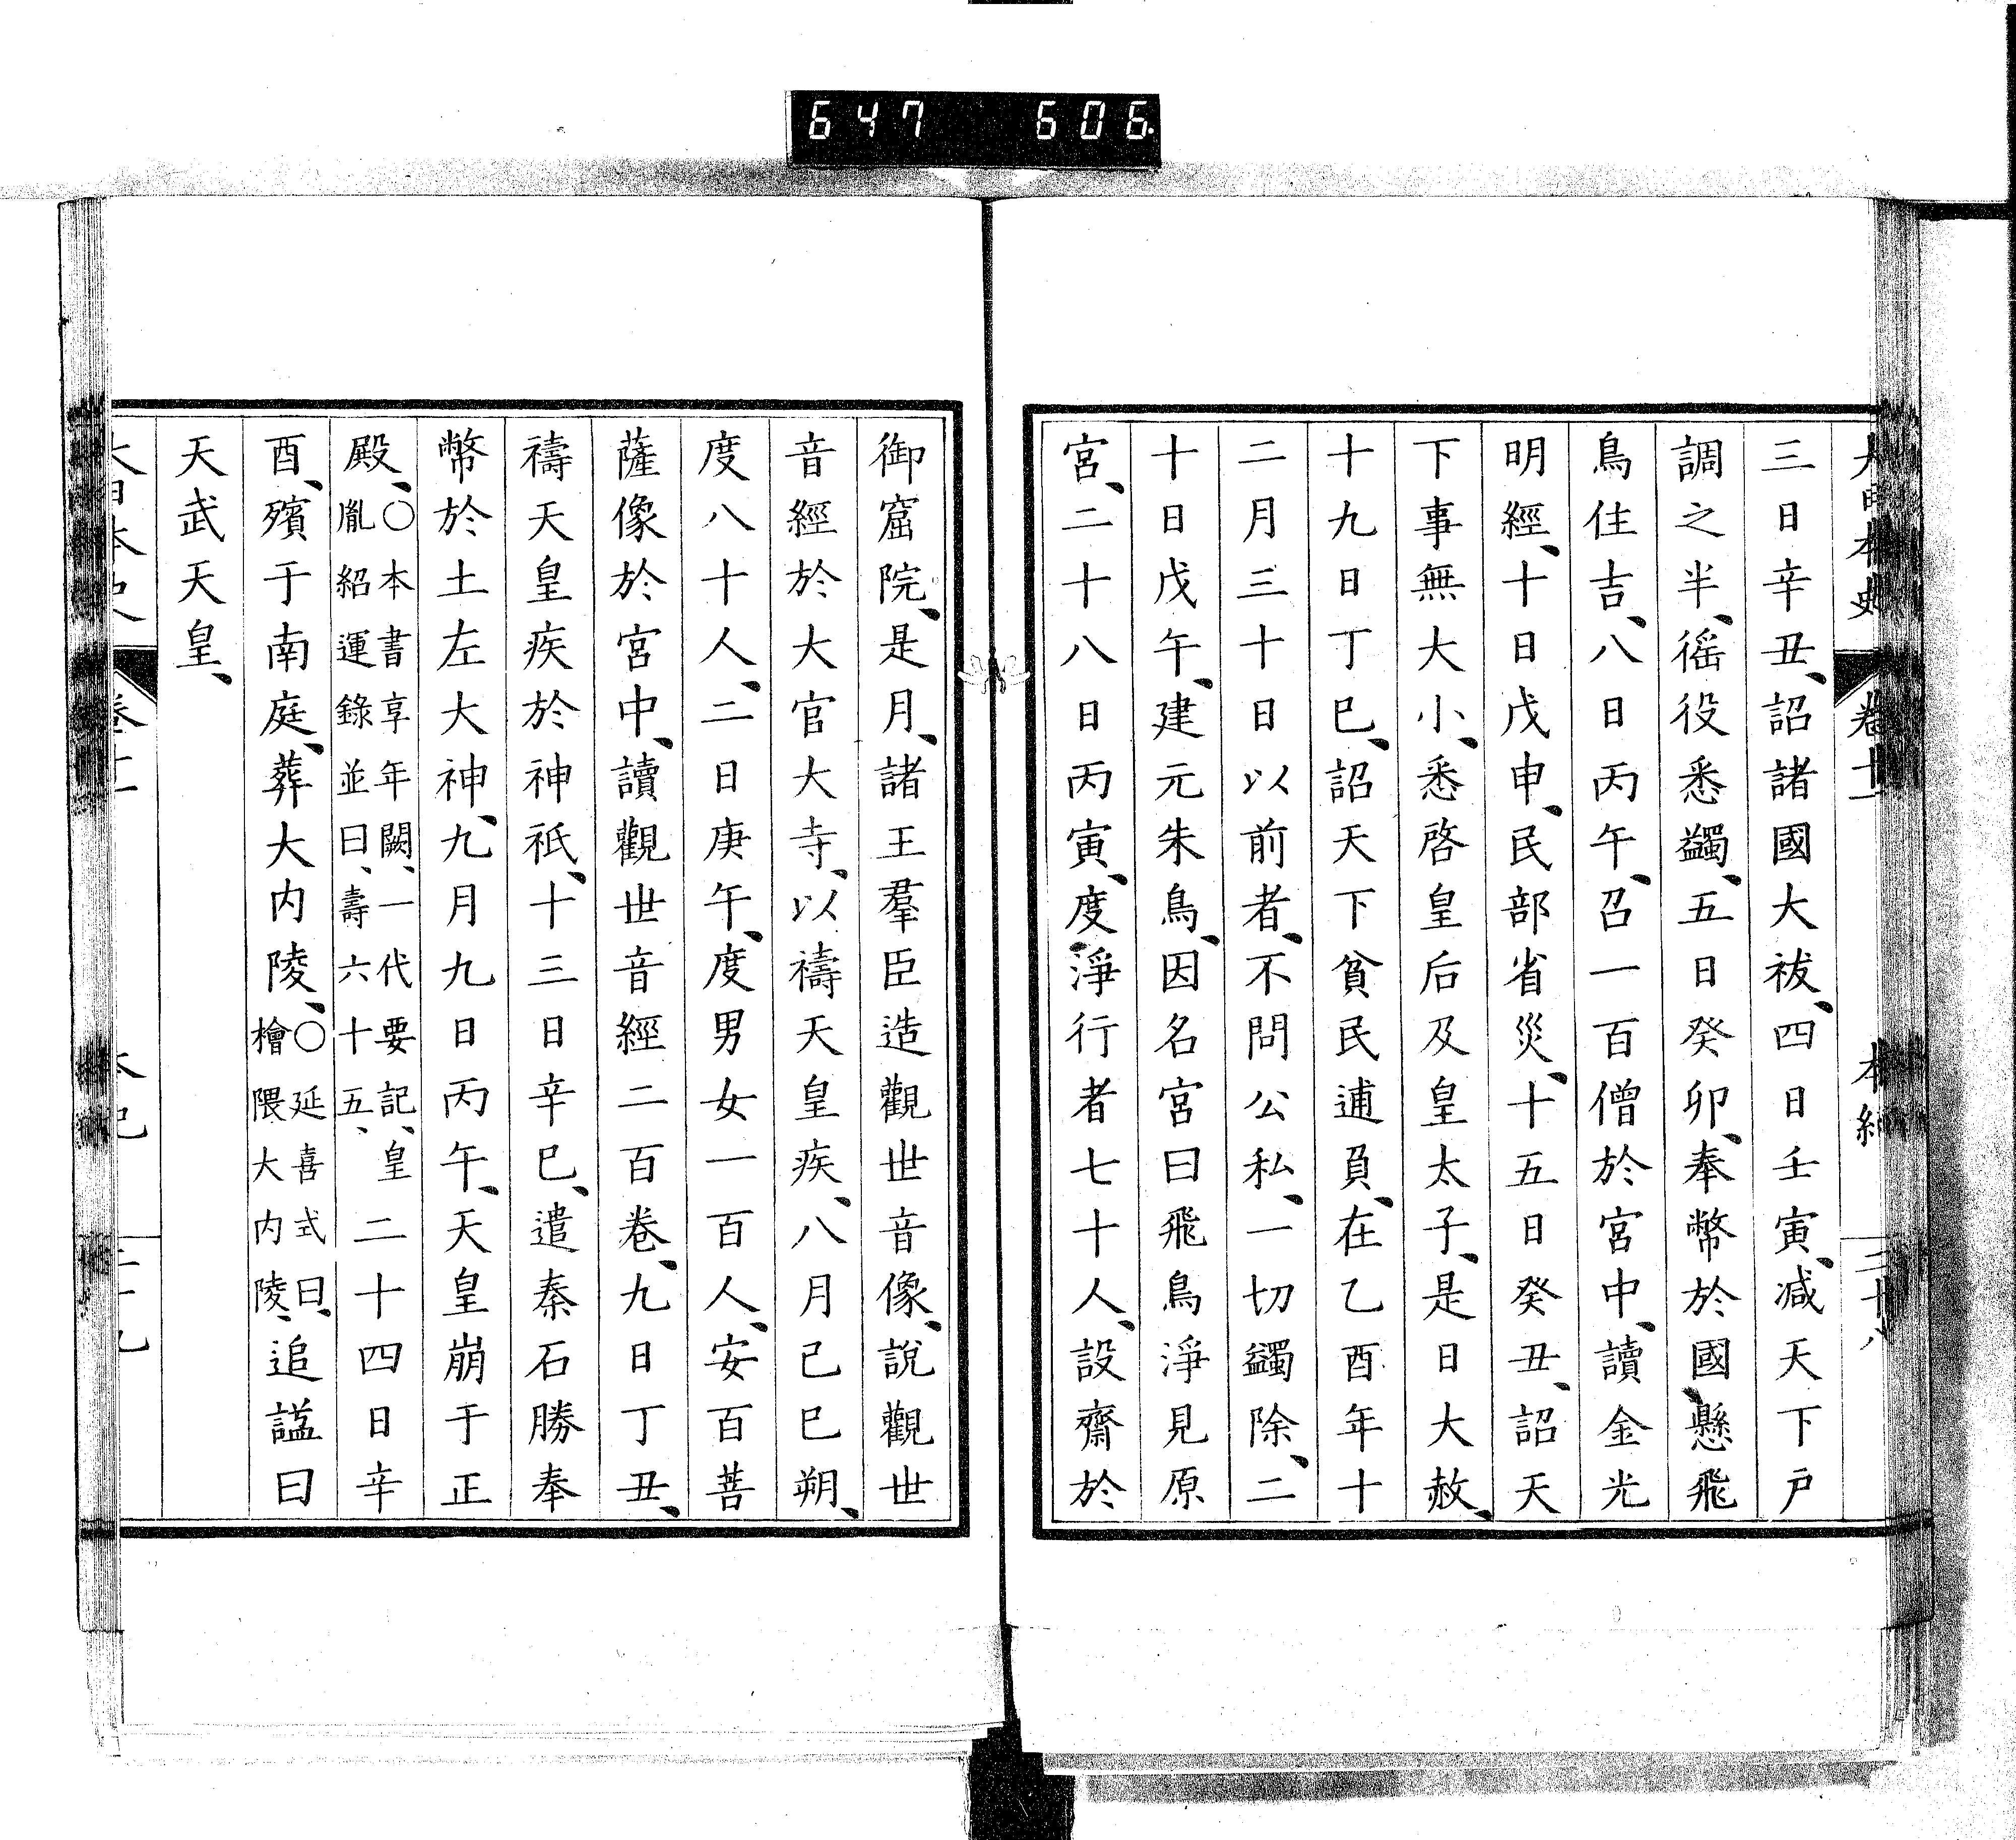 647 606.
大日本史 卷十一 本紀 三十八
三日辛丑、詔諸國大祓、四日壬寅、減天下戶
調之半、徭役悉蠲、五日癸卯、奉幣於國懸飛
鳥住吉、八日丙午、召一百僧於宮中、讀金光
明經、十日戊申、民部省災、十五日癸丑、詔天
下事無大小、悉啓皇后及皇太子、是日大赦、
十九日丁巳、詔天下貧民逋負、在乙酉年十
二月三十日以前者、不問公私、一切蠲除、二
十日戊午、建元朱鳥、因名宮曰飛鳥淨見原
宮、二十八日丙寅、度淨行者七十人、設齋於
御窟院、是月、諸王羣臣造觀世音像、說觀世
音經於大官大寺、以禱天皇疾、八月己巳朔、
度八十人、二日庚午、度男女一百人、安百菩
薩像於宮中、讀觀世音經二百卷、九日丁丑、
禱天皇疾於神祇、十三日辛巳、遣秦石勝奉
幣於土左大神、九月九日丙午、天皇崩于正
殿、○本書享年闕、一代要記、皇胤紹運錄並曰、壽六十五、二十四日辛
酉、殯于南庭、葬大内陵、○延喜式曰、檜隈大内陵、追諡曰
天武天皇、